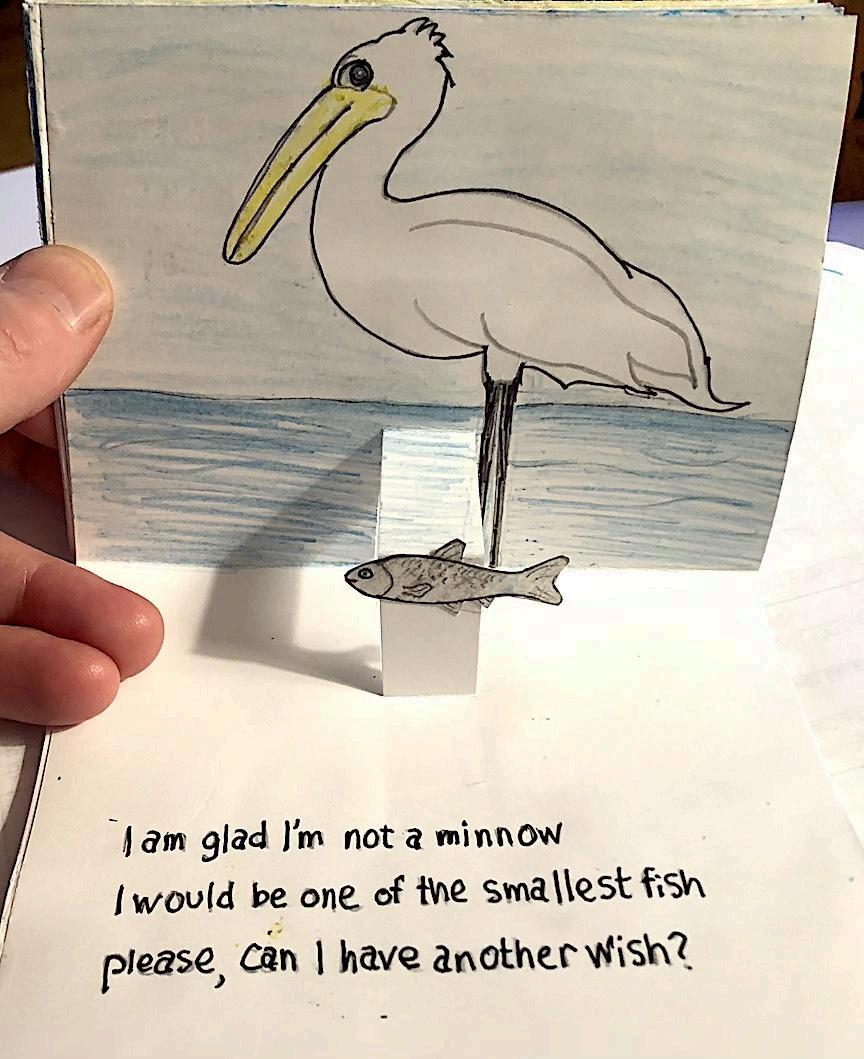 I am glad I'm not a minnow
I would be one of the smallest fish
please, can I have another wish?